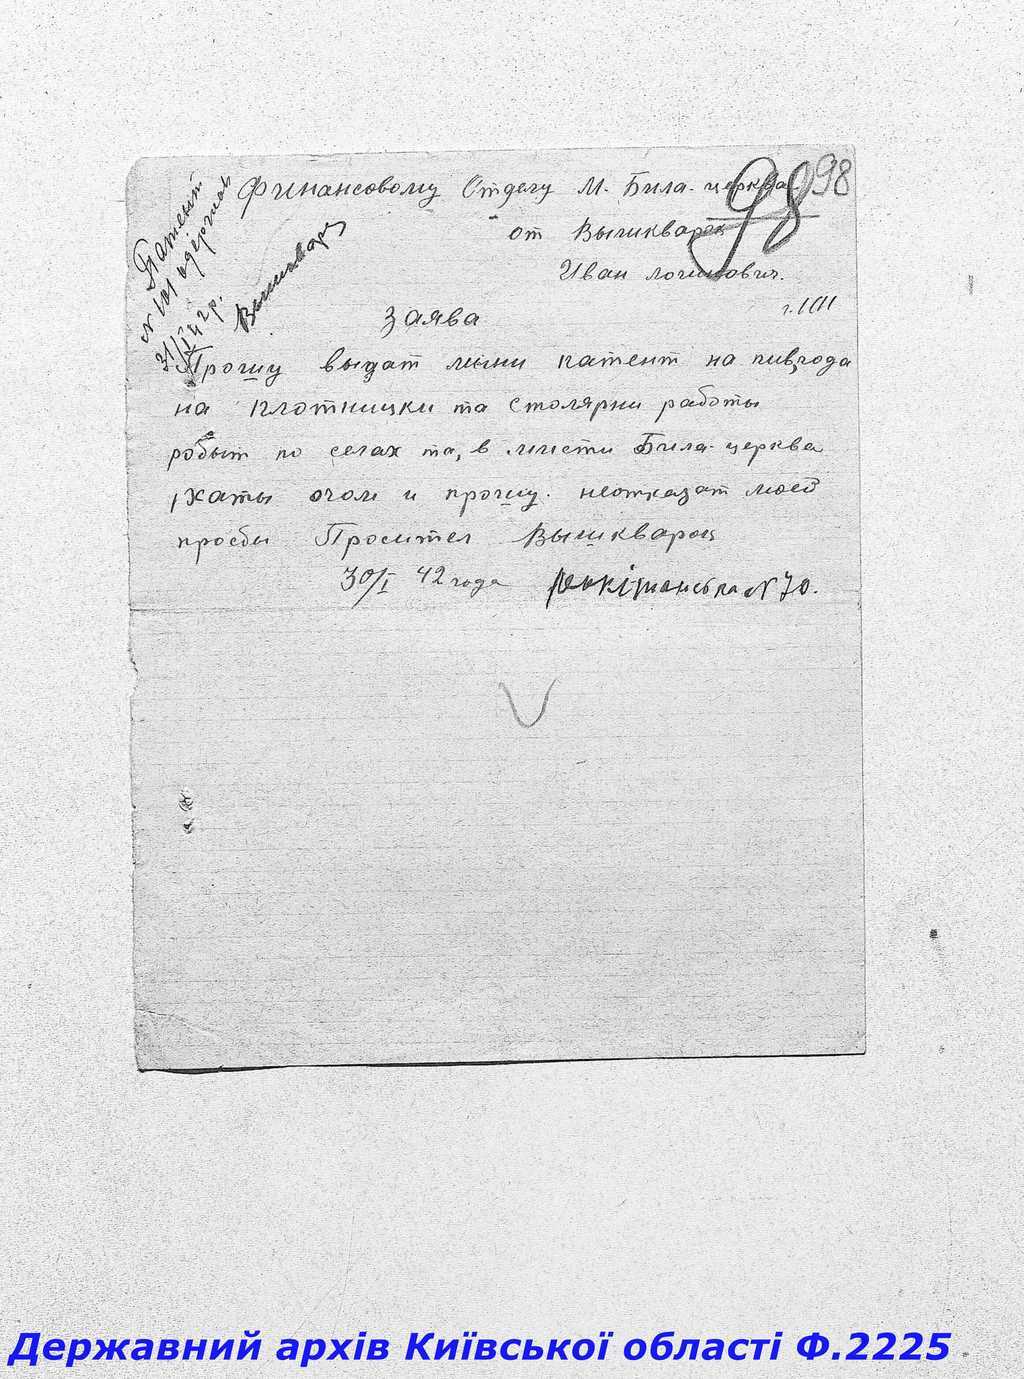 98
98
Финансовому Отделу М. Била-церква.
от Вышкварок
Иван
заява
Прошу выдат мини патент на пивгода
на плотницки та столярни работы
робыт по селах та, в мисти Била-церква
и прошу. неотказат моей
прозбы Проситeл Вышкварок
30/I 42 года №70.
Патент
№ 101 одержав
31/I 42 р.
Вышкварок
Державний архів Київської області Ф.2225